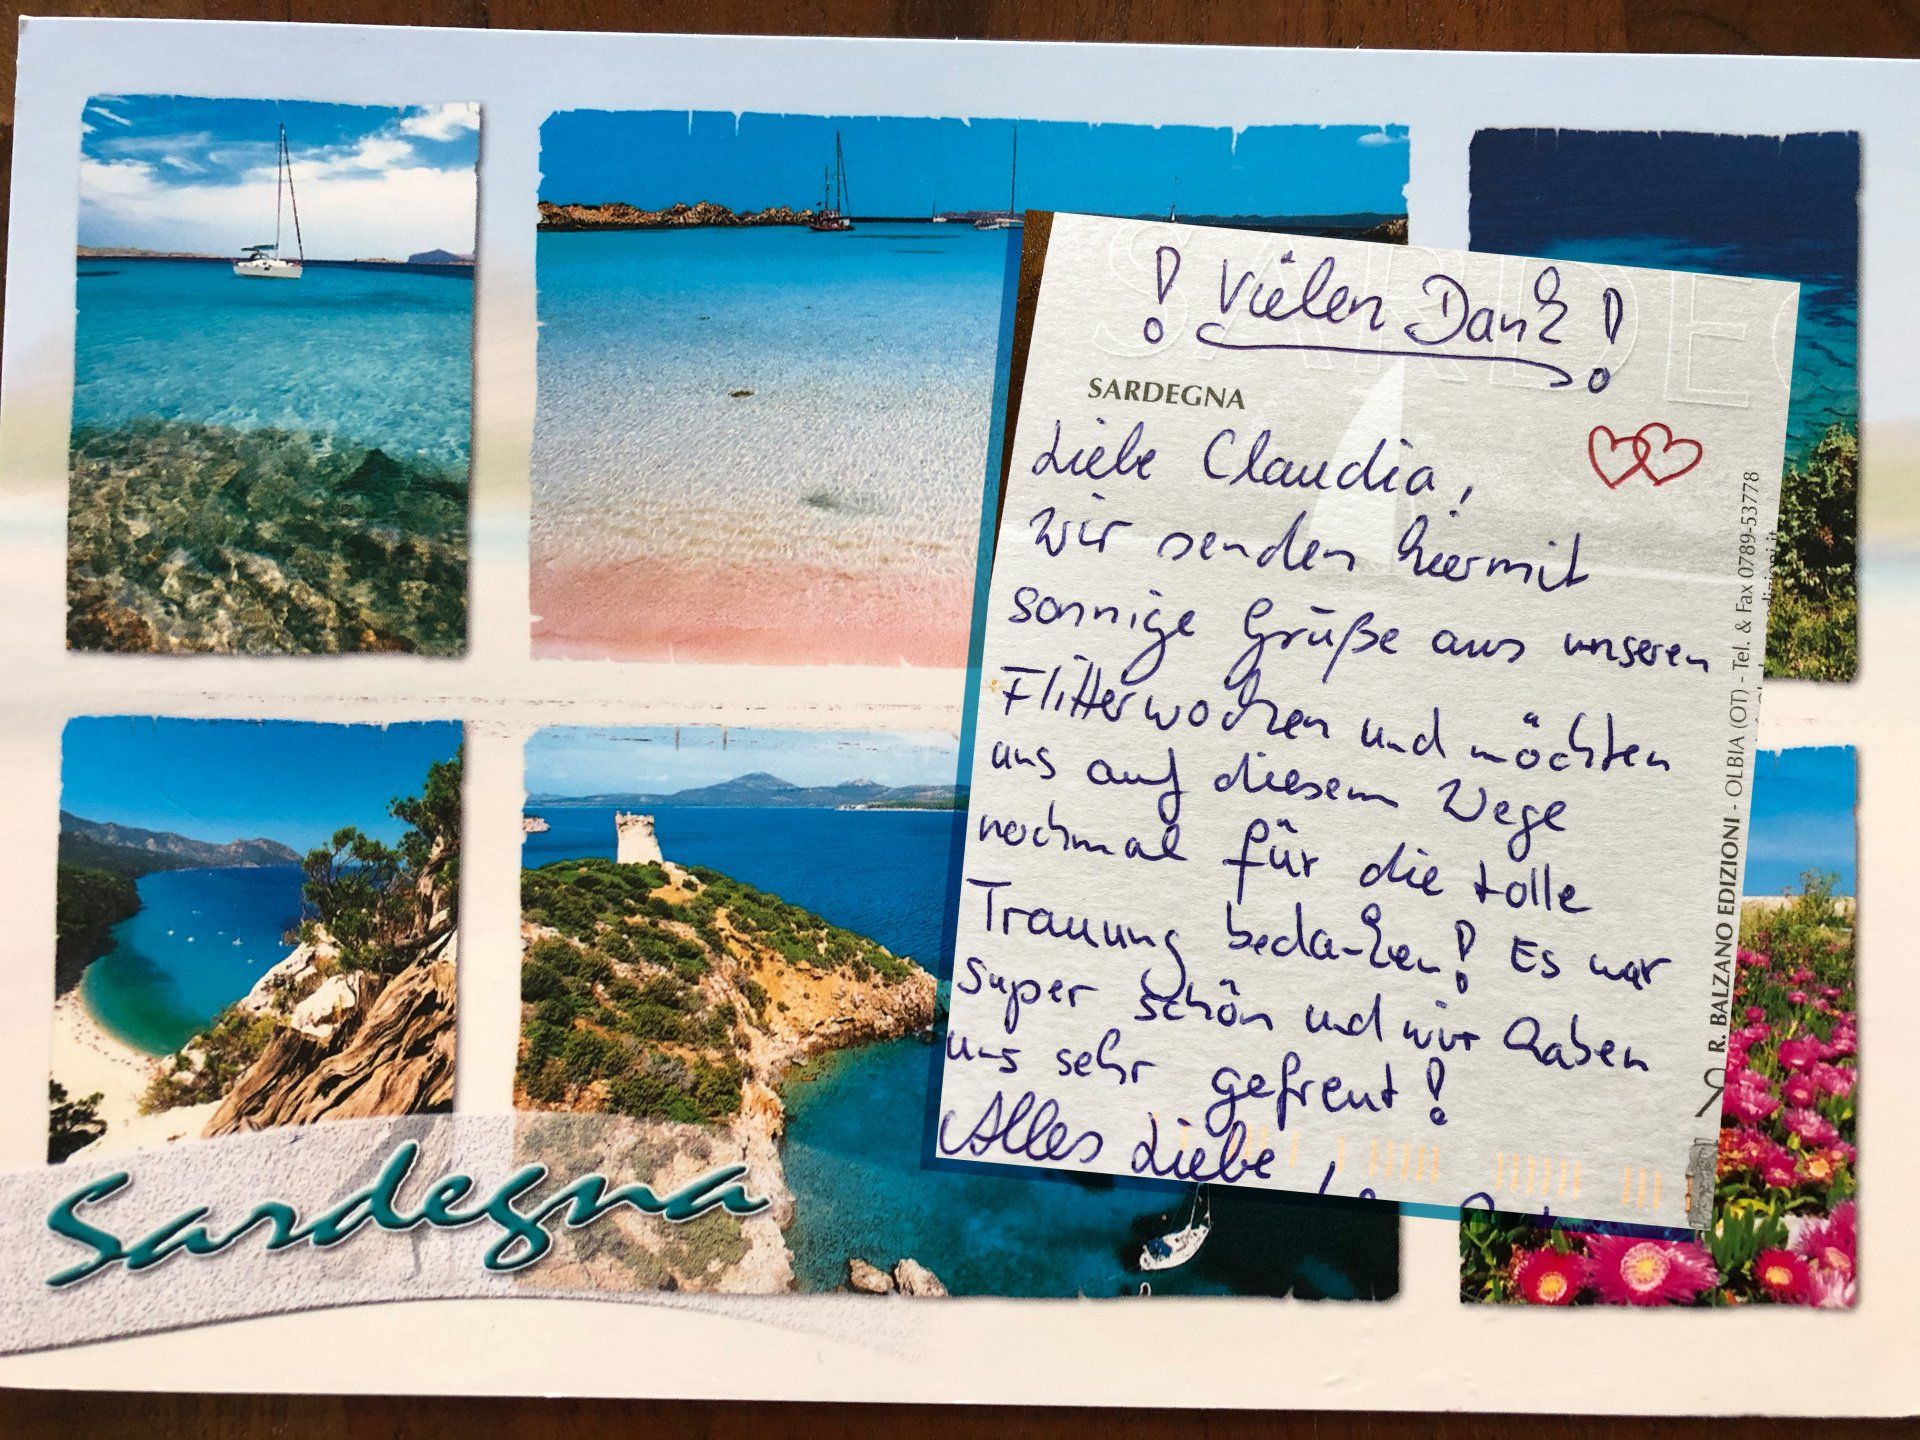 ! Vielen Dank !
SARDEGNA
Liebe Claudia,
wir senden hiermit
sonnige Grüße aus unseren
Flitterwochen und möchten
uns auf diesem Wege
nochmal für die tolle
Trauung bedanken! Es war
super schön und wir haben
uns sehr gefreut!
Alles Liebe,
R. BALZANO EDIZIONI - OLBIA (OT) - Tel. & Fax 0789-53778
Sardegna